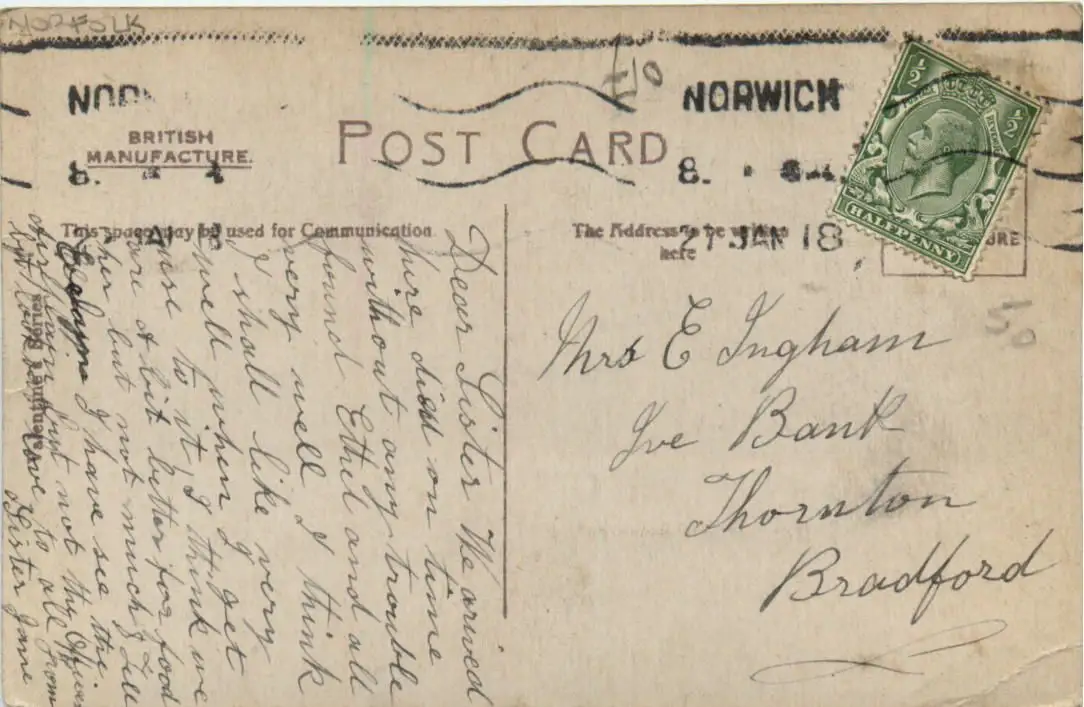 NORFOLK
NORWICH
BRITISH
MANUFACTURE.
POST CARD
8.
27 JAN 18
HALFPENNY
POSTAGE
REVENUE
½
½
This space may be used for Communication
The Address to be written
here
Dear Sister We arived
here on time
without any trouble
found Ethel and all
very well I think
I shall like very
well when I get
use to it, I think we
are a bit better for food
her but not much I
I have see the
but not the
love to all from
Sister Jane
Series
Mrs E Ingham
Ive Bank
Thornton
Bradford